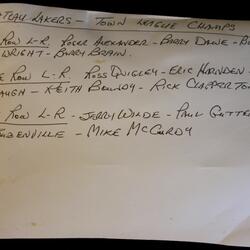 TEAU LAKERS - TOWN LEAGUE CHAMPS
ROW L-R. ROGER ALEXANDER - BARRY DAWE -
WRIGHT - BARRY BRAIN.
ROW L-R. ROSS QUIGLEY - ERIC HARNDEN -
AUGH - KEITH - RICK CLAPPERTON
ROW L-R - JERRY WILDE - PAUL GUTTER
UBENVILLE - MIKE McCURDY